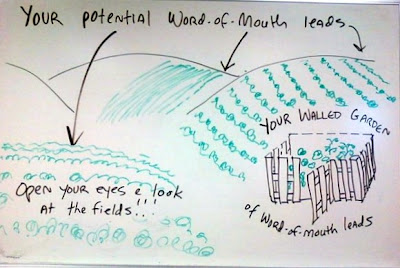 YOUR POTENTIAL WORD-OF-MOUTH LEADS
YOUR WALLED GARDEN
OPEN YOUR EYES & LOOK
AT THE FIELDS!!!
OF WORD-OF-MOUTH LEADS